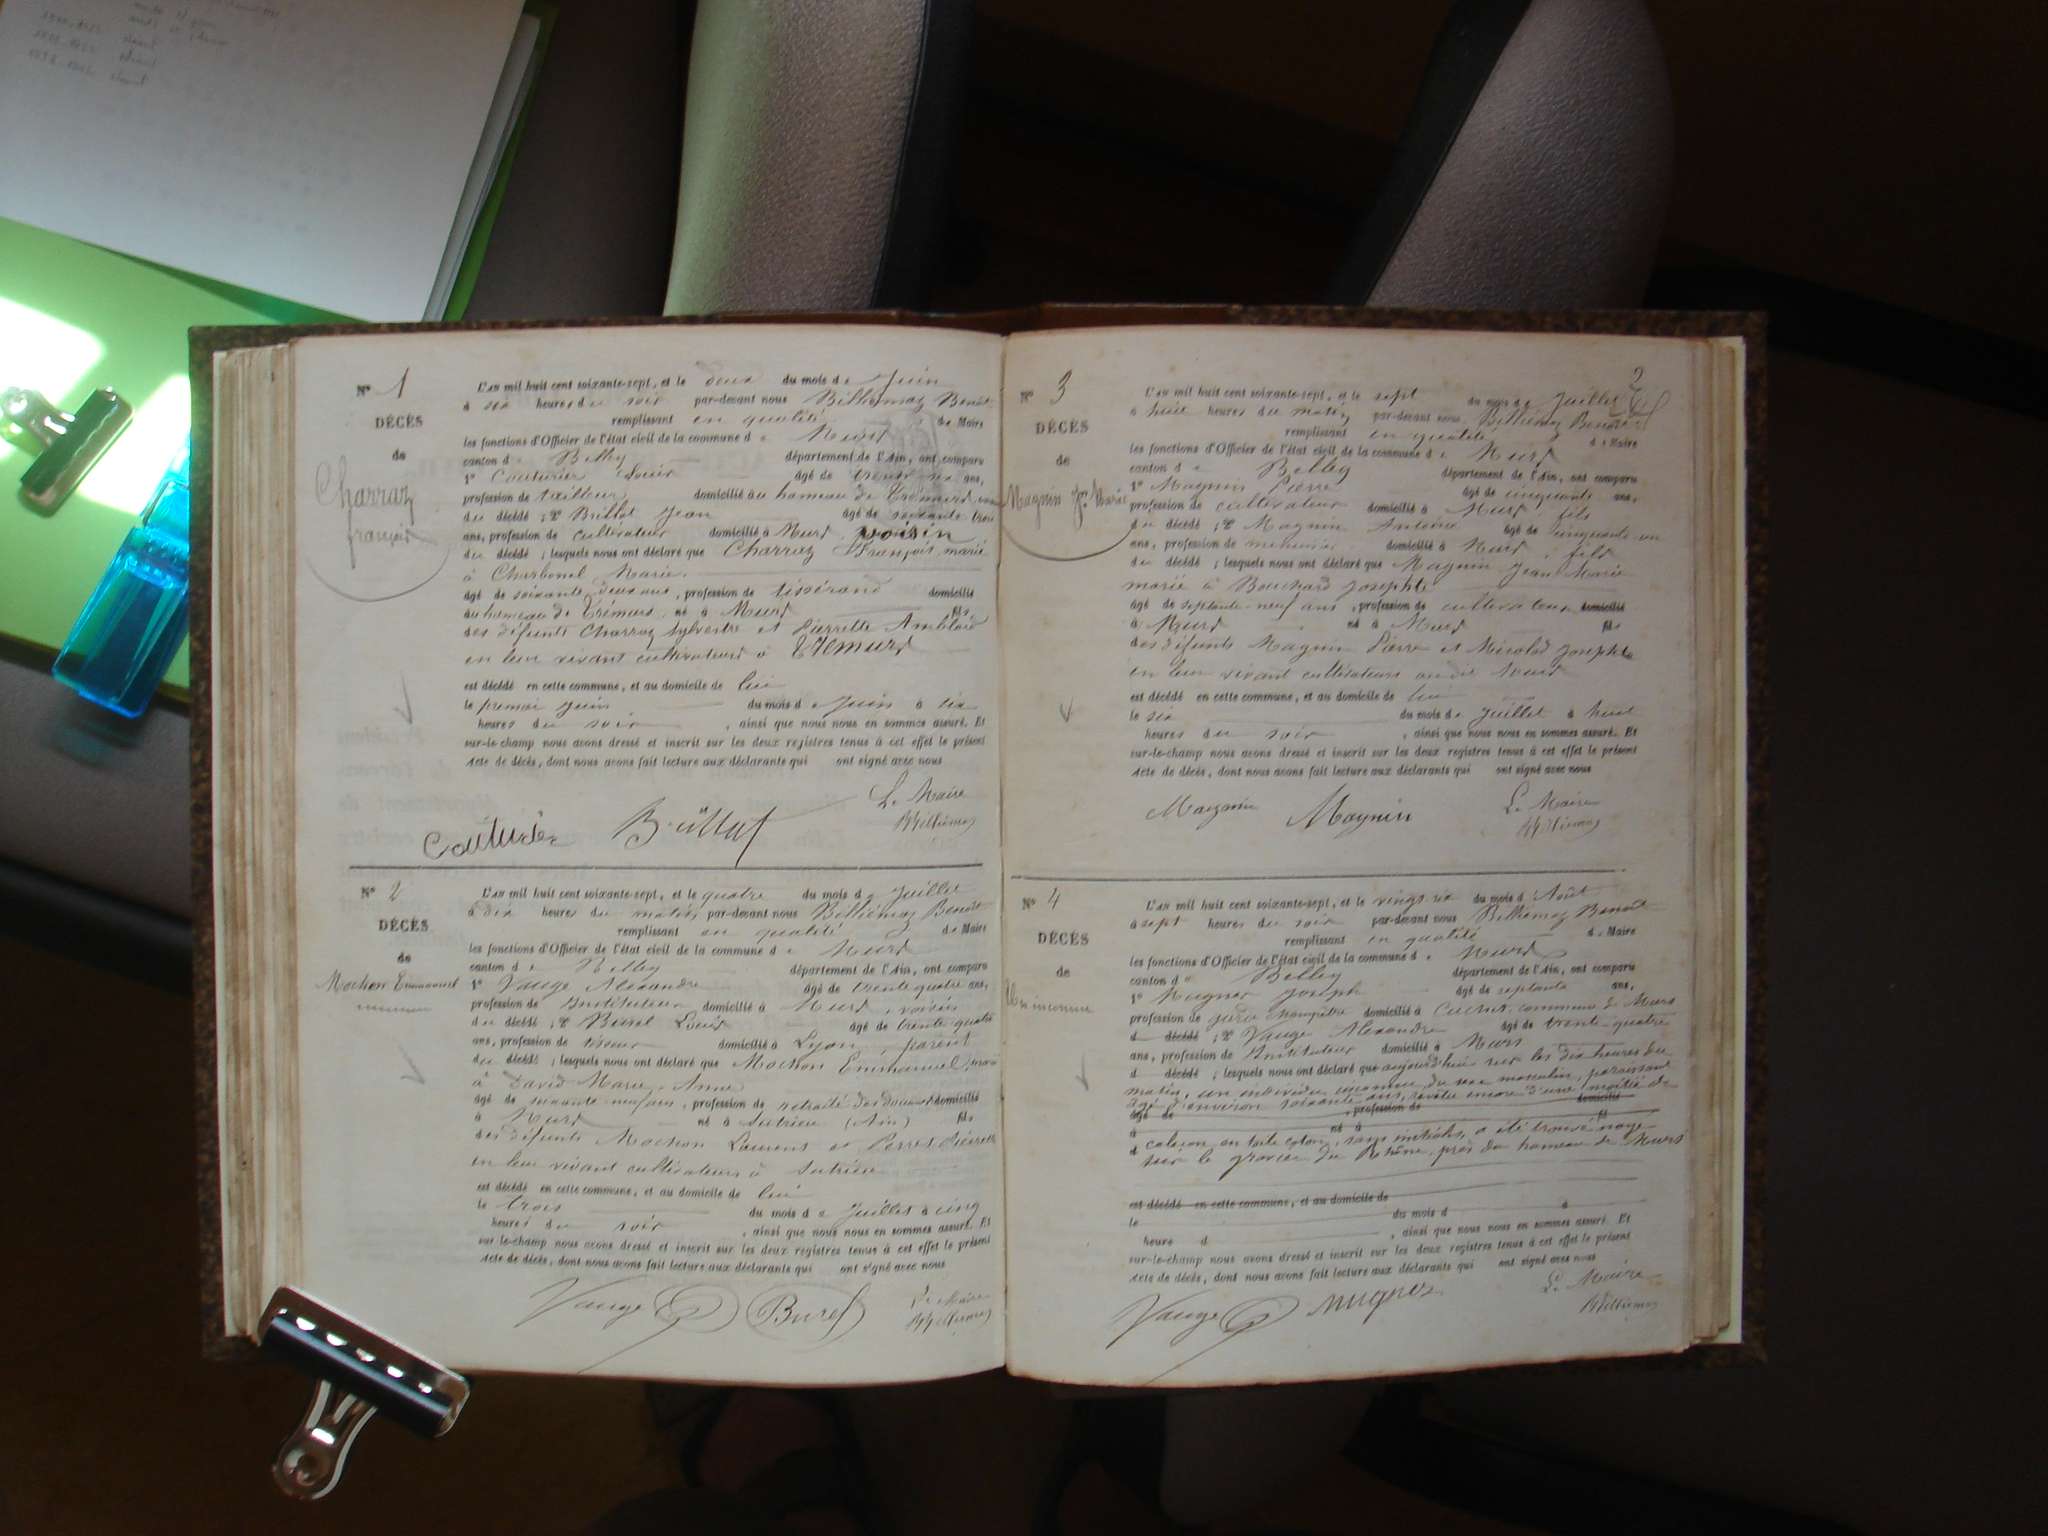 N° 1
DÉCÈS
de
Charraz
françois
L'AN mil huit cent soixante-sept, et le deux du mois de Juin
à six heures du soir par-devant nous Billiémaz Benoît
remplissant en qualité de Maire
les fonctions d'Officier de l'état civil de la commune de Murs
canton de Belley département de l'Ain, ont comparu
1° Couturier Louis âgé de trente six ans,
profession de tailleur domicilié au hameau de Trémurs
du décédé ; 2° Brillat Jean âgé de soixante trois
ans, profession de cultivateur domicilié à Murs voisin
du décédé ; lesquels nous ont déclaré que Charraz François, marié
à Charbonel Marie.
âgé de soixante deux ans, profession de tisserand domicilié
au hameau de Trémurs né à Murs fils
des défunts Charraz Sylvestre et Pierrette Amblard
en leur vivant cultivateurs à Trémurs
est décédé en cette commune, et au domicile de lui
le premier juin du mois de Juin à six
heures du soir, ainsi que nous nous en sommes assuré. Et
sur-le-champ nous avons dressé et inscrit sur les deux registres tenus à cet effet le présent
Acte de décès, dont nous avons fait lecture aux déclarants qui ont signé avec nous
Le Maire
Couturier Brillat Billiémaz
N° 2
DÉCÈS
de
Mochon Emmanuel
L'AN mil huit cent soixante-sept, et le quatre du mois de Juillet
à dix heures du matin par-devant nous Billiémaz Benoît
remplissant en qualité de Maire
les fonctions d'Officier de l'état civil de la commune de Murs
canton de Belley département de l'Ain, ont comparu
1° Vauge Alexandre âgé de trente quatre ans,
profession de Instituteur domicilié à Murs, voisin
du décédé ; 2° Burel Louis âgé de trente quatre
ans, profession de tisseur domicilié à Lyon, parent
du décédé ; lesquels nous ont déclaré que Mochon Emmanuel, marié
à David Marie-Anne
âgé de soixante-neuf ans, profession de retraité des douanes domicilié
à Murs né à Sutrieu (Ain) fils
des défunts Mochon Laurent et Perret Pierrette
en leur vivant cultivateurs à Sutrieu
est décédé en cette commune, et au domicile de lui
le trois du mois de Juillet à cinq
heures du soir, ainsi que nous nous en sommes assuré. Et
sur-le-champ nous avons dressé et inscrit sur les deux registres tenus à cet effet le présent
Acte de décès, dont nous avons fait lecture aux déclarants qui ont signé avec nous
Le Maire
Vauge Burel Billiémaz
2
N° 3
DÉCÈS
de
Magnin Jn Marie
L'AN mil huit cent soixante-sept, et le sept du mois de Juillet
à huit heures du matin par-devant nous Billiémaz Benoît
remplissant en qualité de Maire
les fonctions d'Officier de l'état civil de la commune de Murs
canton de Belley département de l'Ain, ont comparu
1° Magnin Pierre âgé de cinquante ans,
profession de cultivateur domicilié à Murs, fils
du décédé ; 2° Magnin Antoine âgé de cinquante un
ans, profession de menuisier domicilié à Murs, fils
du décédé ; lesquels nous ont déclaré que Magnin Jean Marie
marié à Bouchard Josephte
âgé de septante-neuf ans, profession de cultivateur domicilié
à Murs né à Murs fils
des défunts Magnin Pierre et Nicolas Josephte
en leur vivant cultivateurs au dit Murs
est décédé en cette commune, et au domicile de lui
le six du mois de Juillet à huit
heures du soir, ainsi que nous nous en sommes assuré. Et
sur-le-champ nous avons dressé et inscrit sur les deux registres tenus à cet effet le présent
Acte de décès, dont nous avons fait lecture aux déclarants qui ont signé avec nous
Le Maire
Magnin Magnin Billiémaz
N° 4
DÉCÈS
de
Un inconnu
L'AN mil huit cent soixante-sept, et le vingt six du mois d'Août
à sept heures du soir par-devant nous Billiémaz Benoît
remplissant en qualité de Maire
les fonctions d'Officier de l'état civil de la commune de Murs
canton de Belley département de l'Ain, ont comparu
1° Mugnier Joseph âgé de septante ans,
profession de garde champêtre domicilié à commune de Murs
d décédé ; 2° Vauge Alexandre âgé de trente-quatre
ans, profession de Instituteur domicilié à Murs
d décédé ; lesquels nous ont déclaré que aujourd'hui sur les dix heures du
matin, un individu inconnu du sexe masculin, paraissant
âgé d'environ soixante ans, revêtu encore d'une moitié de
âgé de , profession de domicilié
à né à fil
d caleçon en toile coton, sans initiales, a été trouvé noyé
sur le gravier du Rhône, près du hameau de Murs
est décédé en cette commune, et au domicile de
le du mois d à
heure d , ainsi que nous nous en sommes assuré. Et
sur-le-champ nous avons dressé et inscrit sur les deux registres tenus à cet effet le présent
Acte de décès, dont nous avons fait lecture aux déclarants qui ont signé avec nous
Le Maire
Vauge Mugnier Billiémaz